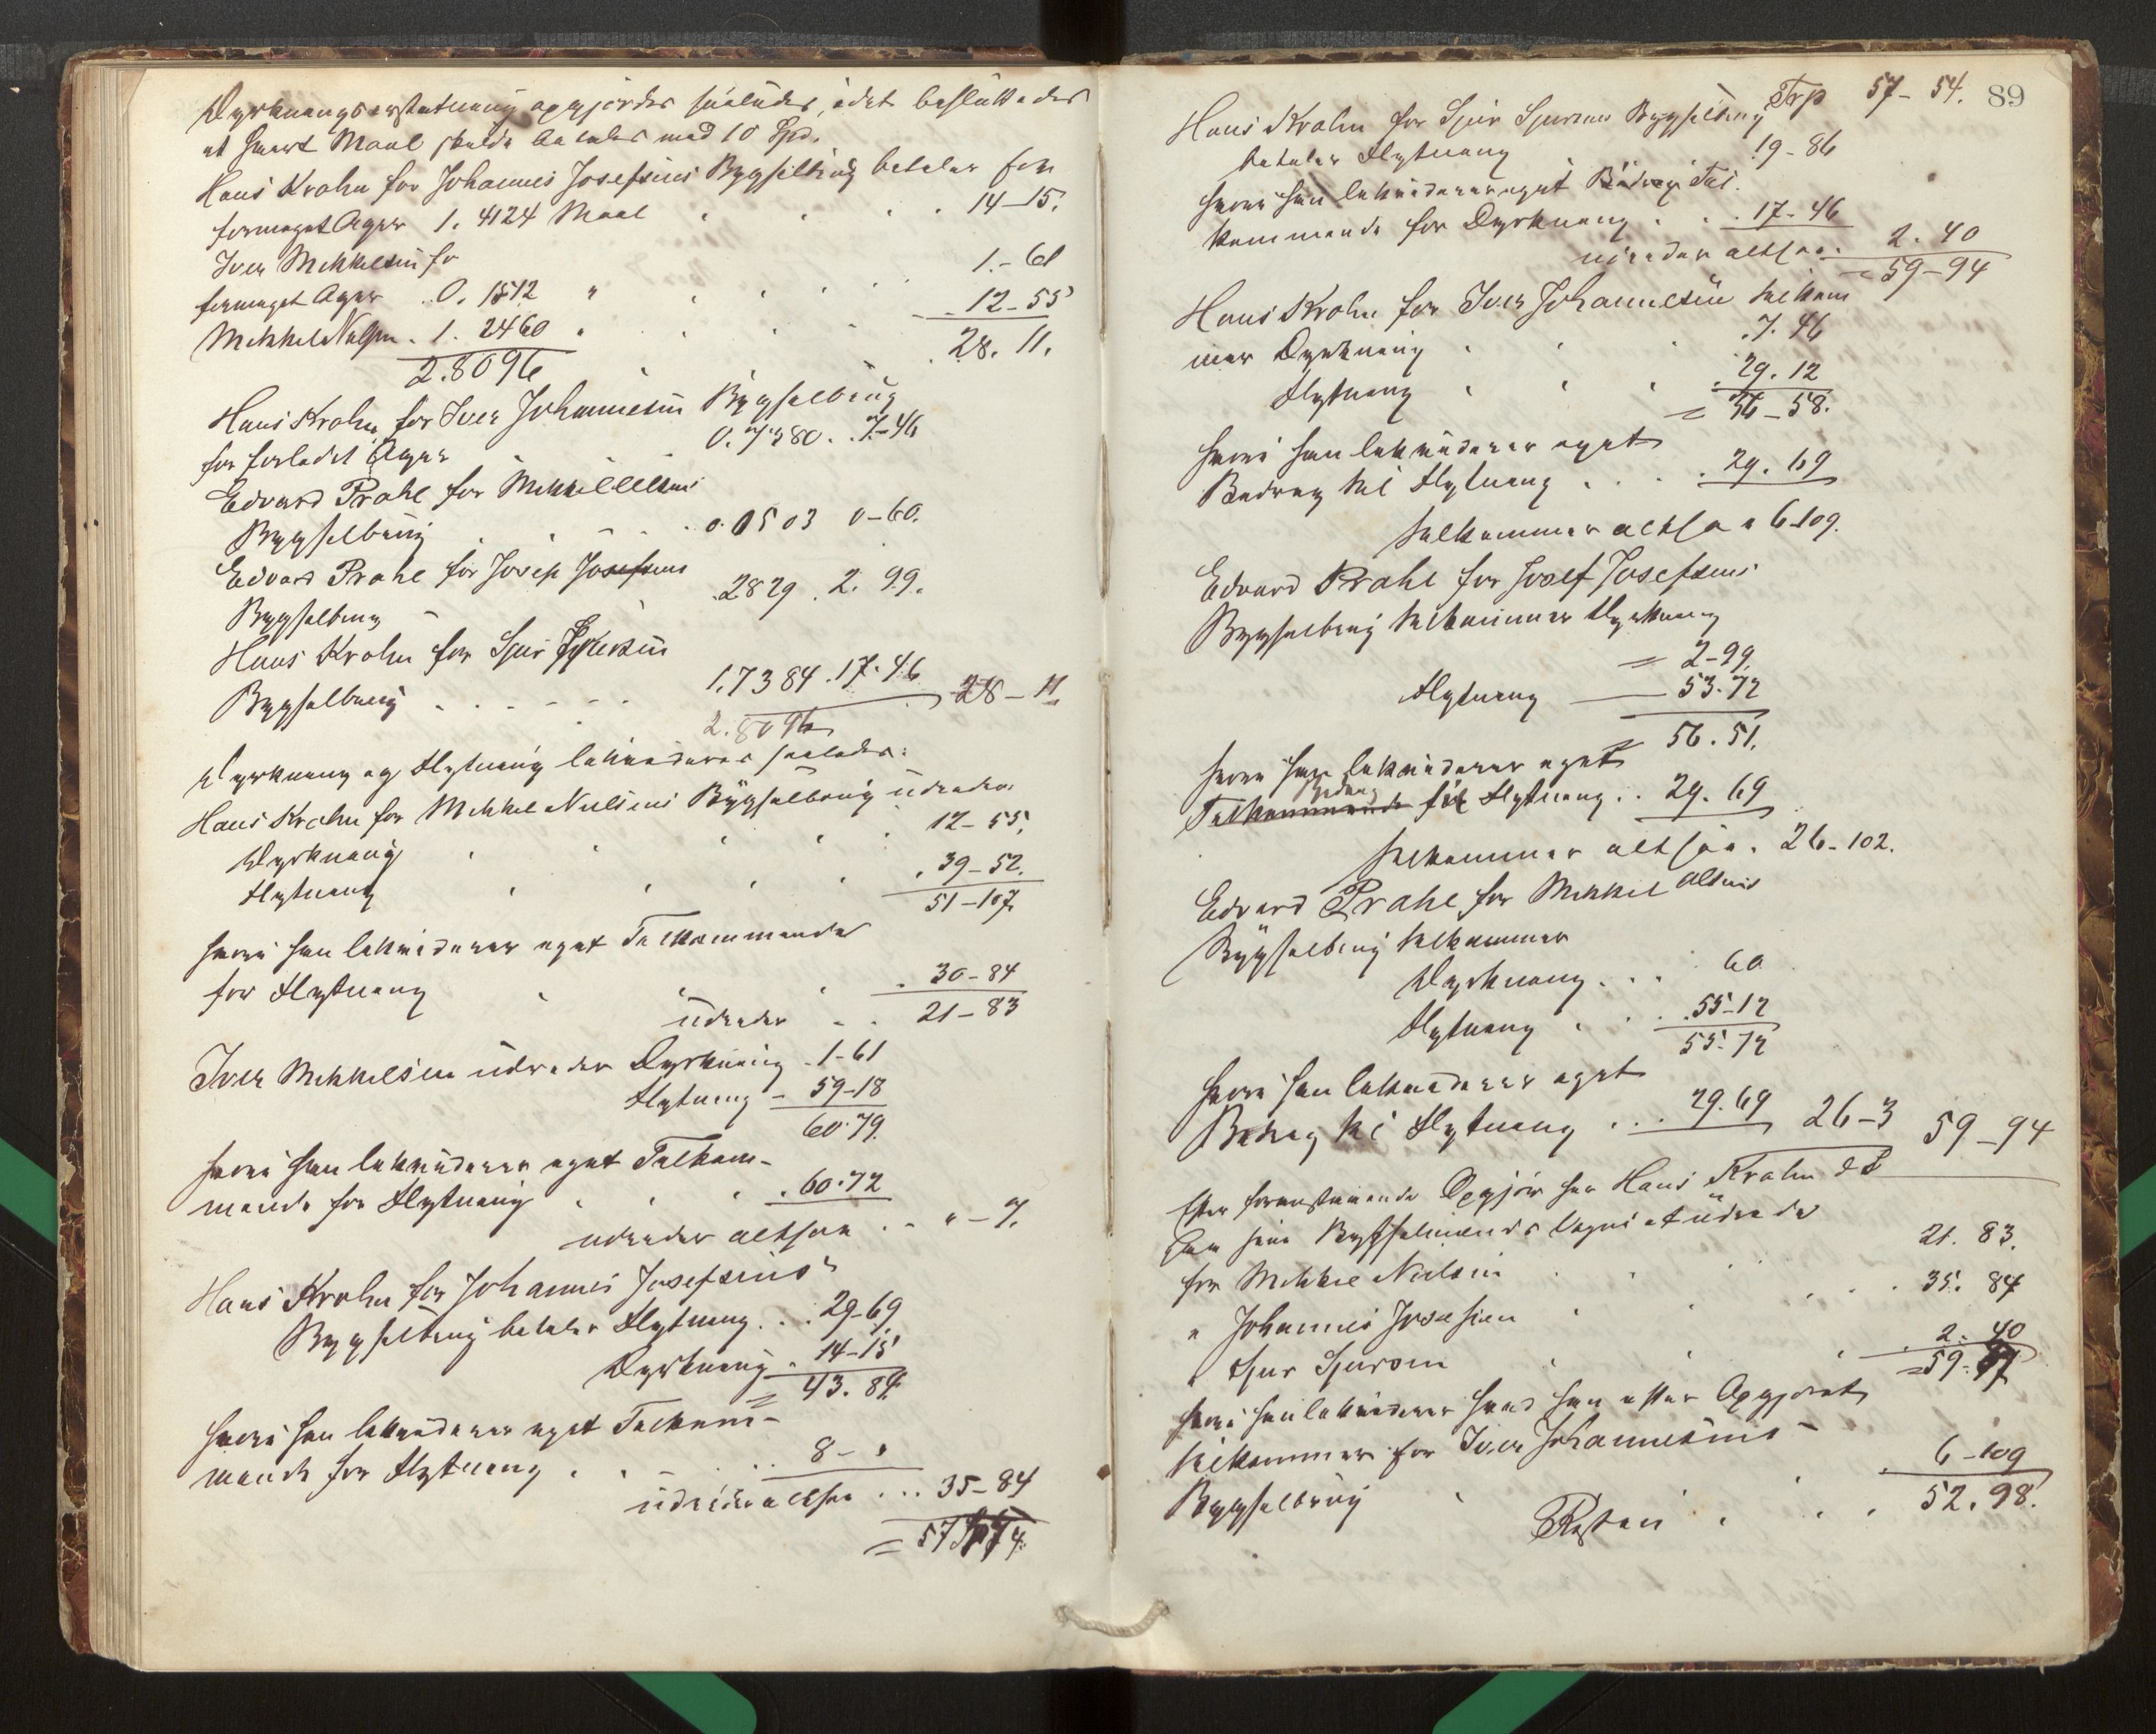 Dyrkningserstatning opgjördes saaledes, idet besluttedes
at hvert Maal skulde betales med 10 Spd.
Hans Krohn for Johannes Josefsens Bygselbrug betaler for
formeget Ager 1. 4124 Maal . . . . 14-15.
Iver Mikkelsen for
formeget Ager . 0. 1512 " . . . . 1.-61
Mikkel Nielsen . 1. 2460 " . . . . 12-55
2.8096 . 28. 11.
Hans Krohn for Iver Johannesens Bygselbrug
for forladt Ager 0. 7380. . 7-46
Edvard Prahl for Mikkel Olsens
Bygselbrug . . . . 0. 0503 0-60.
Edvard Prahl for Josep Josefsens
Bygselbrug - .2829 . 2. 99.
Hans Krohn for Sjur Sjursens
Bygselbrug . . . . . . 1.7384 . 17.46 28-11
2.8096
Dyrkning og Flytning likvideres saaledes:
Hans Krohn for Mikkel Nielsens Bygselbrug udreder
Dyrkning . . . . 12-55.
Flytning . . . . 39-52.
51-107
hvori han likviderer eget Tilkommende
for Flytning . . . . 30-84
udreder . . 21-83
Iver Mikkelsen udreder Dyrkning . 1-61
Flytning - 59-18
60.79.
hvori han likviderer eget Tilkom-
mende for Flytning . . . . 60.72
udreder altsaa . . " - 7.
Hans Krohn for Johannes Josefsens
Bygselbrug betaler Flytning . . . 29-69
Dyrkning . 14-15
= 43. 84
hvori han likviderer eget Tilkom-
mende for Flytning . . . . 8-"
udreder altsaa . . . 35-84
= 57
Trp 57-54. 89
Hans Krohn for Sjur Sjursens Bygselbrug
betaler Flytning 19-86
hvori han likviderer eget Bedrag Til-
kommende for Dyrkning . . . 17-46
udreder altsaa . 2. 40
= 59-94
Hans Krohn for Iver Johannesen tilkom
mer Dyrkning . . . . 7. 46
Flytning . . . . 29. 12
= 36-58.
hvori han likviderer eget
Bedrag til Flytning . . . . 29. 69
tilkommer altsaa 6-109.
Edvard Prahl for Josef Josefsens
Bygselbrug tilkommer Dyrkning
= 2-99.
Flytning — 53.72
= 56. 51.
hvori han likviderer eget
Tilkommende Bedrag til Flytning . . 29. 69
tilkommer altsaa . 26-102.
Edvard Prahl for Mikkel Olsens
Bygselbrug tilkommer
Dyrkning . . . 60
Flytning . . . 55-12
55.72
hvori han likviderer eget
Bedrag til Flytning . . . 29.69 26-3 59-94
Efter foranstaaende Opgjör har Hans Krohn
paa sine Bygselmænds Vegne at udrede
for Mikkel Nielsen . . . 21. 83.
" Johannes Josefsen . . . . 35. 84
" Sjur Sjursen . . . . 2. 40
= 59.
hvori han likviderer hvad han efter Opgjöret
tilkommer for Iver Johannesens
Bygselbrug . . . 6-109
Resten . . . 52. 98.